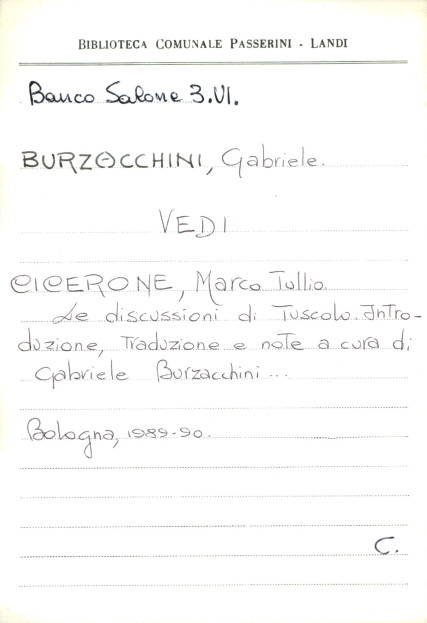 BIBLIOTECA COMUNALE PASSERINI - LANDI
Banco Salone 3.VI.
BURZACCHINI, Gabriele.
VEDI
CICERONE, Marco Tullio.
Le discussioni di Tuscolo. Intro-
duzione, Traduzione e note a cura di
Gabriele Burzacchini...
Bologna, 1989-90.
C.